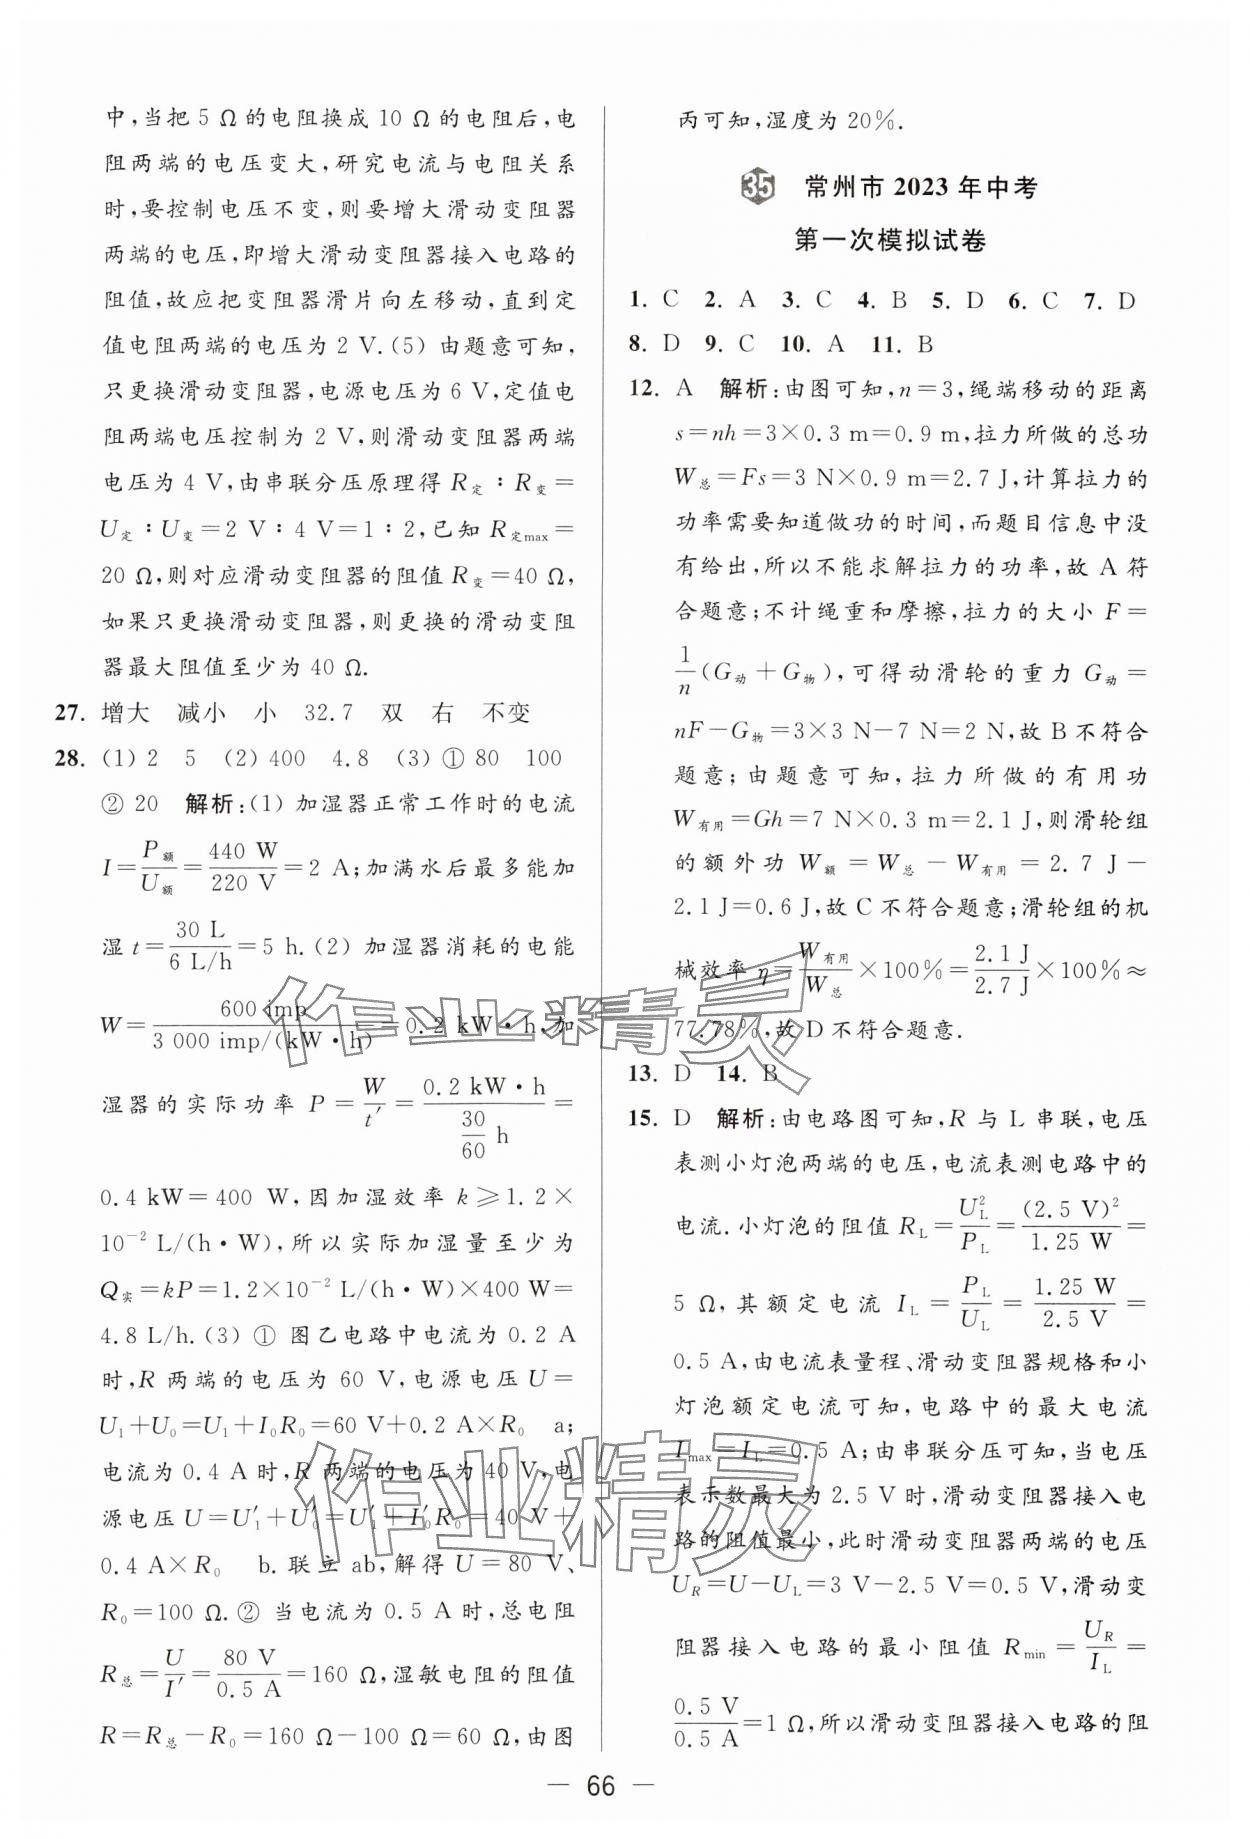 中,当把 5 Ω 的电阻换成 10 Ω 的电阻后,电
阻两端的电压变大,研究电流与电阻关系
时,要控制电压不变,则要增大滑动变阻器
两端的电压,即增大滑动变阻器接入电路的
阻值,故应把变阻器滑片向左移动,直到定
值电阻两端的电压为 2 V.(5) 由题意可知,
只更换滑动变阻器,电源电压为 6 V,定值电
阻两端电压控制为 2 V,则滑动变阻器两端
电压为 4 V,由串联分压原理得 R定∶R变=
U定∶U变=2 V∶4 V=1∶2,已知 R定max=
20 Ω,则对应滑动变阻器的阻值 R变=40 Ω,
如果只更换滑动变阻器,则更换的滑动变阻
器最大阻值至少为 40 Ω.
27. 增大 减小 小 32.7 双 右 不变
28. (1) 2 5 (2) 400 4.8 (3) ① 80 100
② 20 解析:(1) 加湿器正常工作时的电流
I=P额/U额=440 W/220 V=2 A;加满水后最多能加
湿 t=30 L/6 L/h=5 h.(2) 加湿器消耗的电能
W=600 imp/3 000 imp/(kW·h)=0.2 kW·h,加
湿器的实际功率 P=W/t′=0.2 kW·h/(30/60 h)=
0.4 kW=400 W,因加湿效率 k≥1.2×
10⁻² L/(h·W),所以实际加湿量至少为
Q实=kP=1.2×10⁻² L/(h·W)×400 W=
4.8 L/h.(3) ① 图乙电路中电流为 0.2 A
时,R 两端的电压为 60 V,电源电压 U=
U₁+U₀=U₁+I₀R₀=60 V+0.2 A×R₀ a;
电流为 0.4 A 时,R 两端的电压为 40 V,电
源电压 U=U′₁+U′₀=U′₁+I′₀R₀=40 V+
0.4 A×R₀ b. 联立 ab,解得 U=80 V、
R₀=100 Ω.② 当电流为 0.5 A 时,总电阻
R总=U/I′=80 V/0.5 A=160 Ω,湿敏电阻的阻值
R=R总-R₀=160 Ω-100 Ω=60 Ω,由图
丙可知,湿度为 20%.
35 常州市 2023 年中考
第一次模拟试卷
1. C 2. A 3. C 4. B 5. D 6. C 7. D
8. D 9. C 10. A 11. B
12. A 解析:由图可知,n=3,绳端移动的距离
s=nh=3×0.3 m=0.9 m,拉力所做的总功
W总=Fs=3 N×0.9 m=2.7 J,计算拉力的
功率需要知道做功的时间,而题目信息中没
有给出,所以不能求解拉力的功率,故 A 符
合题意;不计绳重和摩擦,拉力的大小 F=
1/n(G动+G物),可得动滑轮的重力 G动=
nF-G物=3×3 N-7 N=2 N,故 B 不符合
题意;由题意可知,拉力所做的有用功
W有用=Gh=7 N×0.3 m=2.1 J,则滑轮组
的额外功 W额=W总-W有用=2.7 J-
2.1 J=0.6 J,故 C 不符合题意;滑轮组的机
械效率 η=W有用/W总×100%=2.1 J/2.7 J×100%≈
77.78%,故 D 不符合题意.
13. D 14. B
15. D 解析:由电路图可知,R 与 L 串联,电压
表测小灯泡两端的电压,电流表测电路中的
电流.小灯泡的阻值 R_L=U_L²/P_L=(2.5 V)²/1.25 W=
5 Ω,其额定电流 I_L=P_L/U_L=1.25 W/2.5 V=
0.5 A,由电流表量程、滑动变阻器规格和小
灯泡额定电流可知,电路中的最大电流
I_max=I_L=0.5 A;由串联分压可知,当电压
表示数最大为 2.5 V 时,滑动变阻器接入电
路的阻值最小,此时滑动变阻器两端的电压
U_R=U-U_L=3 V-2.5 V=0.5 V,滑动变
阻器接入电路的最小阻值 R_min=U_R/I_L=
0.5 V/0.5 A=1 Ω,所以滑动变阻器接入电路的阻
作业精灵
作业精灵
— 66 —